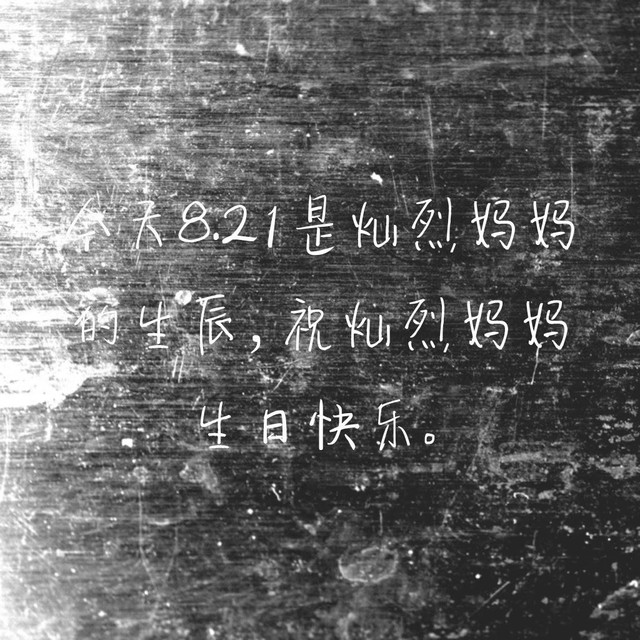 今天8.21是灿烈妈妈
的生辰，祝灿烈妈妈
生日快乐。